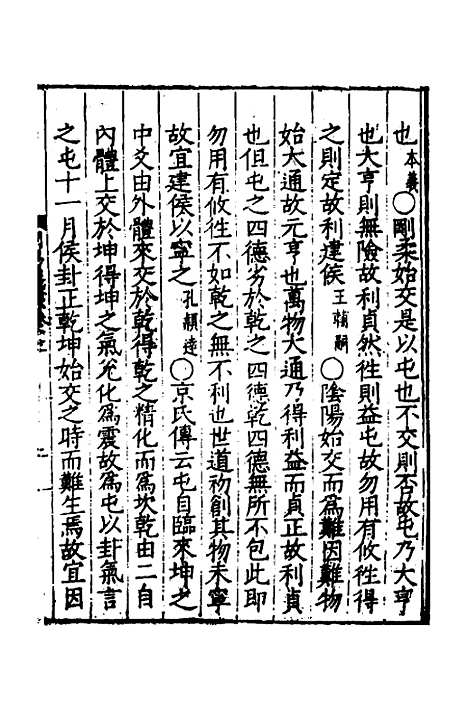 也本義〇剛柔始交是以屯也不交則否故屯乃大亨
也大亨則無險故利貞然徃則益屯故勿用有攸徃得
之則定故利建侯王輔嗣〇陰陽始交而爲難因難物
始大通故元亨也萬物大通乃得利益而貞正故利貞
也但屯之四德劣於乾之四德乾四德無所不包此即
勿用有攸徃不如乾之無不利也世道初創其物未寧
故宜建侯以寧之孔頴逹〇京氏傳云屯自臨來坤之
中爻由外體來交於乾得乾之精化而爲坎乾由二自
内體上交於坤得坤之氣兊化爲震故爲屯以卦氣言
之屯十一月侯卦正乾坤始交之時而難生焉故宜因